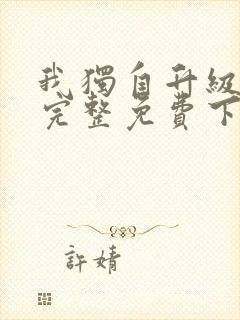 我獨自升級
完整免費下
許婧